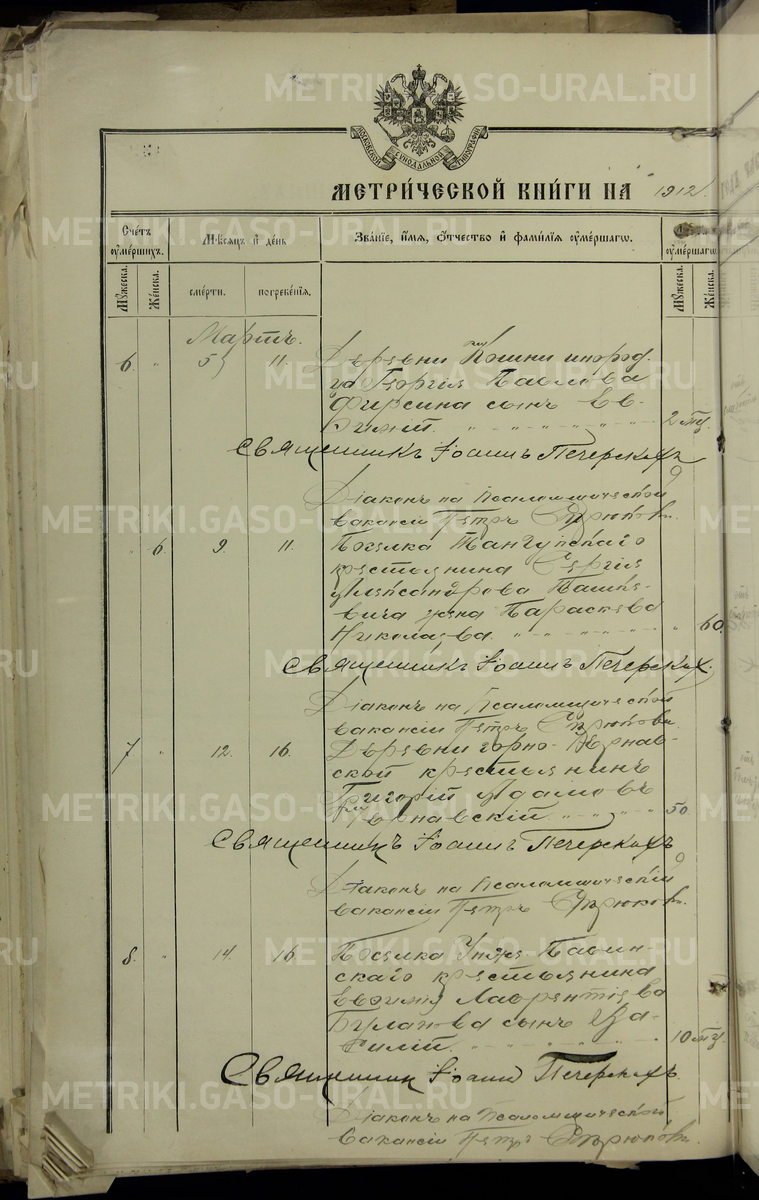 METRIKI.GASO-URAL.RU
МОСКОВСКОЙ СѴНОДАЛЬНОЙ ТИПОГРАФІИ
МЕТРИЧЕСКОЙ КНИГИ НА 1912
Счетъ умершихъ. Мѣсяцъ и день Званіе, имя, отчество и фамилія умершаго. умершаго
Мужеска. Женска. смерти. погребенія. Мужеска. Женска.
Мартъ.
6. " 5 11. Деревни Кошки инород
ца Георгія Павлова
Фирсина сынъ Ев-
фимій 2 мц.
Священникъ Іоаннъ Печерскихъ
Діаконъ на Псаломщической
вакансіи Петръ
" 6. 9. 11. Поселка
крестьянина Сергія
Александрова Пашке-
вича жена Параскева
Николаева " 60.
Священникъ Іоаннъ Печерскихъ.
Діаконъ на Псаломщической
вакансіи Петръ
7 " 12. 16. Деревни
ской крестьянинъ
Григорій Адамовъ
" 50.
Священникъ Іоаннъ Печерскихъ
Діаконъ на Псаломщической
вакансіи Петръ
8. " 14. 16 Поселка
скаго крестьянина
Евфимія Лаврентіева
Буланова сынъ Ва-
силій 10 мц.
Священникъ Іоаннъ Печерскихъ
Діаконъ на Псаломщической
вакансіи Петръ